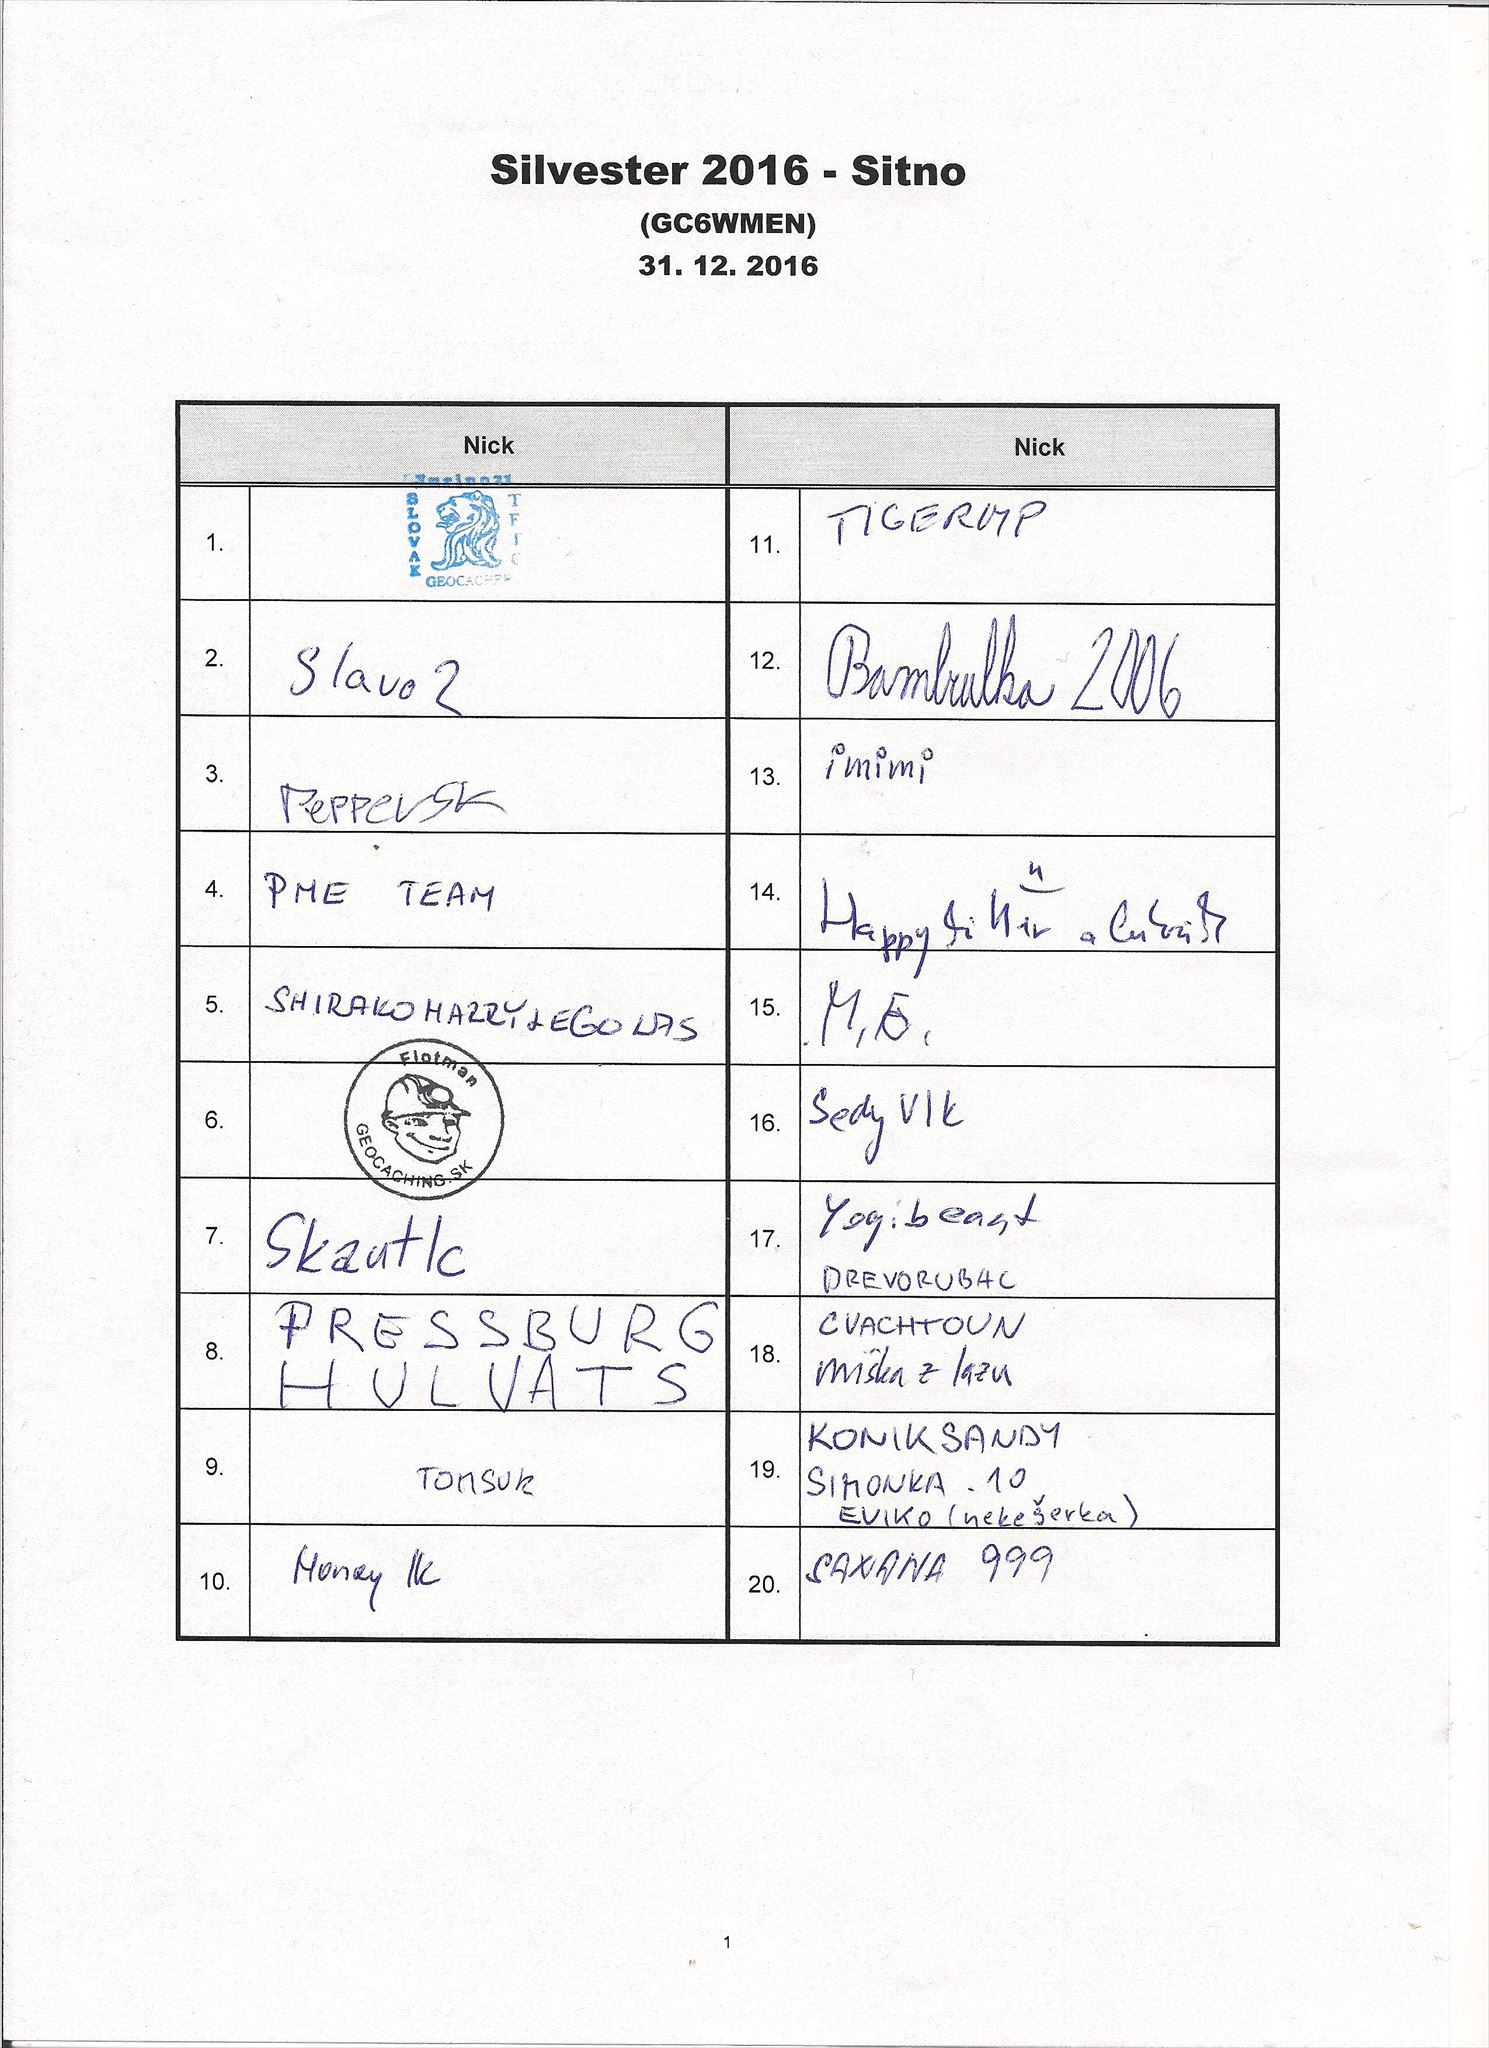 Silvester 2016 - Sitno
(GC6WMEN)
31. 12. 2016
Nick
Nick
1.
SLOVAK
GEOCACHER
2.
Slavo2
3.
4.
PME TEAM
5.
SHIRAKO HARRY
6.
Flotman
GEOCACHING.SK
7.
Skautk
8.
PRESSBURG
HULVATS
9.
TOMSUK
10.
Honzy lk
11.
12.
Bambulka 2006
13.
imimi
14.
Happy
15.
16.
Sedy Vlk
17.
Yogibeast
DREVORUBAC
18.
CVACHTOUN
miška z lazu
19.
KONIKSANDY
SIMONKA.10
EVIKO (nekešerka)
20.
SAXANA 999
1